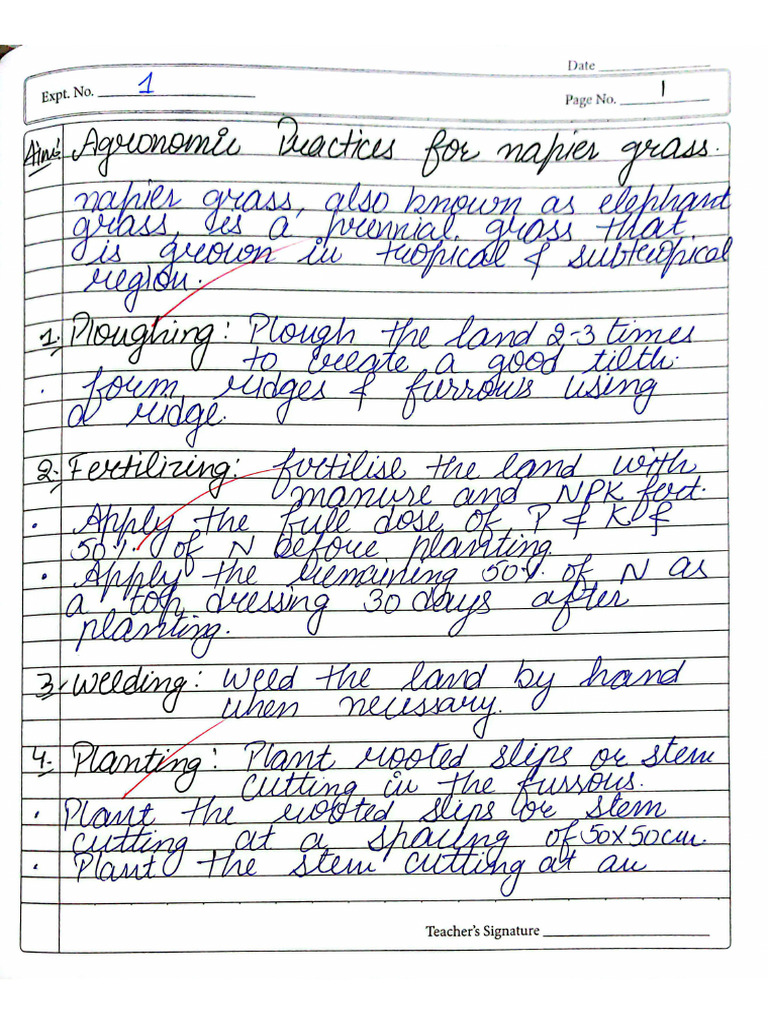 Date
Expt. No. 1
Page No. 1
Aim: Agronomic Practices for napier grass.
napier grass, also known as elephant
grass, is a prennial grass that
is grown in tropical & subtropical
region.
1. Ploughing: Plough the land 2-3 times
to create a good tilth.
. form ridges & furrows using
a ridge.
2. Fertilizing: fertilise the land with
manure and NPK fert.
. Apply the full dose of P & K &
50% of N before planting.
. Apply the remaining 50% of N as
a top dressing 30 days after
planting.
3. Weeding: Weed the land by hand
when necessary.
4. Planting: Plant rooted slips or stem
cutting in the furrous.
. Plant the rooted slips or stem
cutting at a spacing of 50x50cm.
. Plant the stem cutting at an
Teacher's Signature